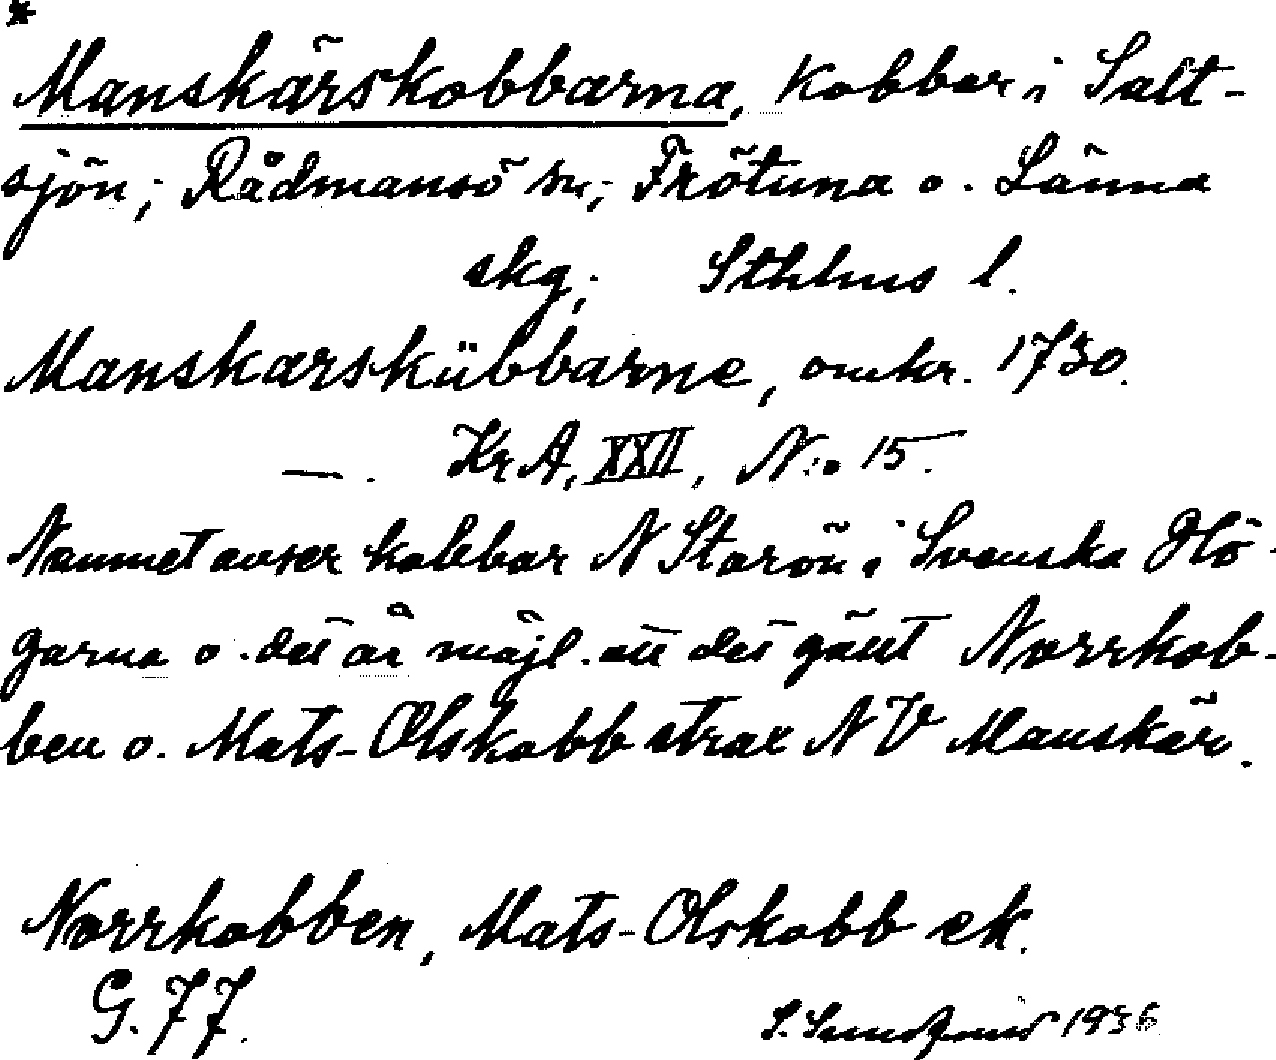 *
Manskärskobbarna, kobbar i Salt-
sjön; Rådmansö sn; Frötuna o. Länna
skg; Sthlms l.
Manskarskübbarne, omkr. 1730.
—. Kr A, XXII, N:o 15.
Namnet avser kobbar N Storön i Svenska Hö-
garna o. det är möjl. att det gällt Norrkob-
ben o. Mats-Olskobb strax NV Manskär.
Norrkobben, Mats-Olskobb ek.
G. 77.
S. 1936